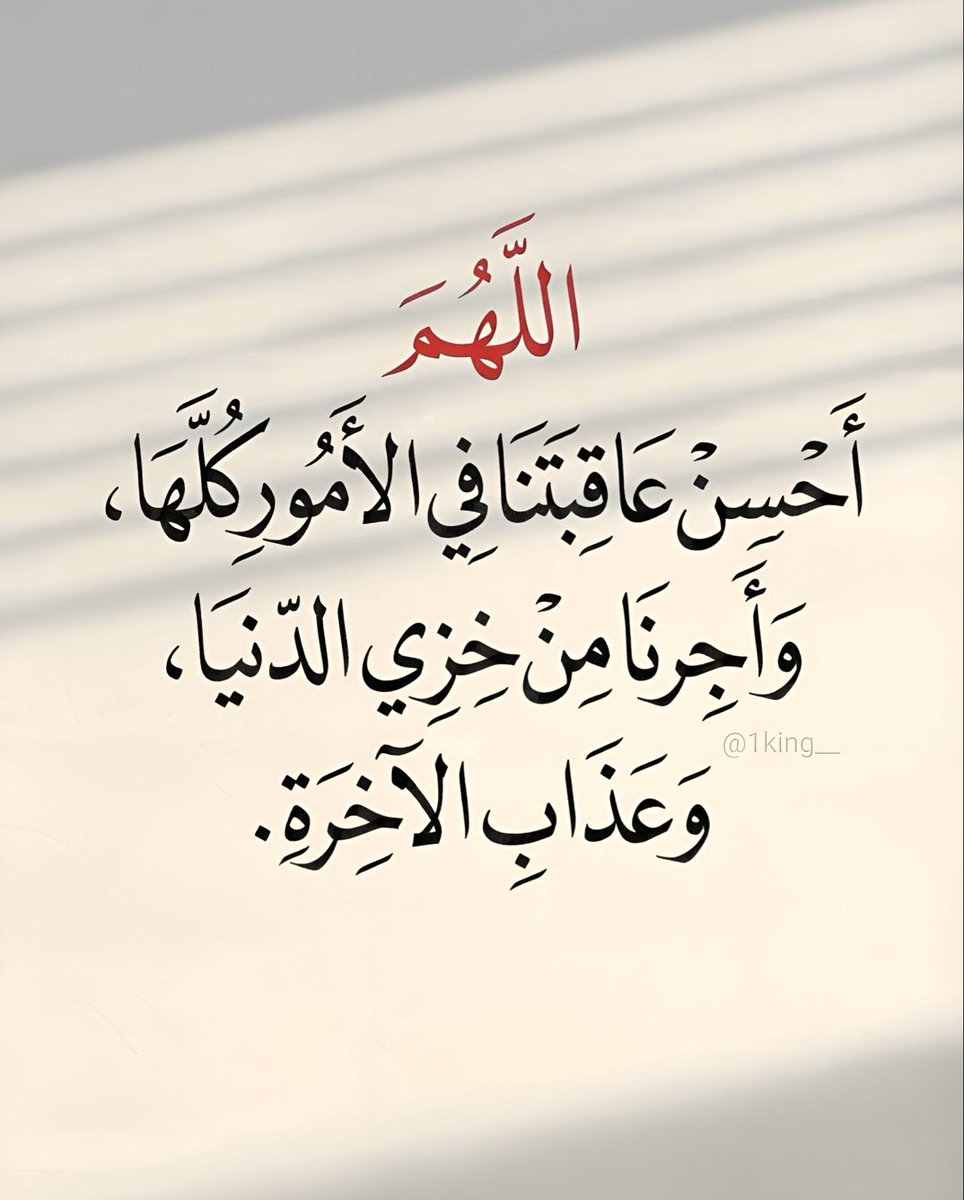 اللَّهُمَ
أَحْسِنْ عَاقِبَتَنَا فِي الأَمُورِ كُلَّهَا،
وَأَجِرنَا مِنْ خِزِي الدّنيَا،
@1king__
وَعَذَابِ الآخِرَةِ.